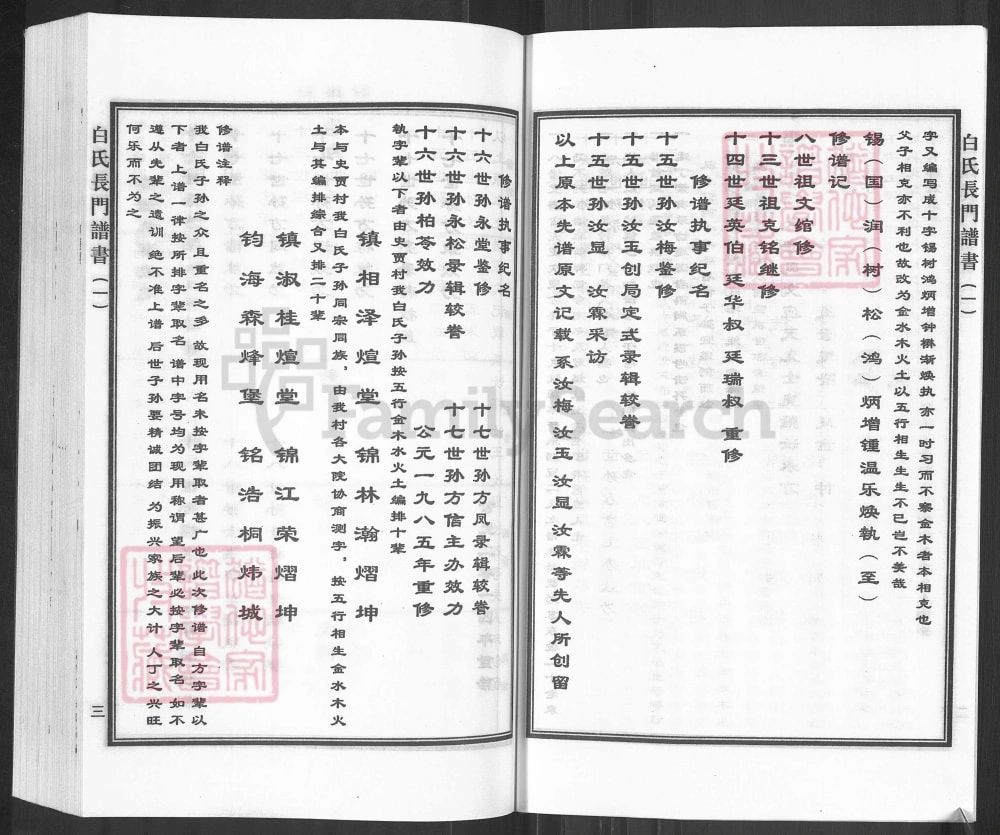 白氏長門譜書（一）
二
字又编写成十字锡树鸿炳增钟榯渐焕执 亦一时习而不察金木者本相克也
父子相克亦不利也故改为金水木火土以五行相生生生不已岂不美哉
锡（国）润（树）松（鸿）炳增锺温乐焕执（至）
修谱记
八世祖文绾修
十三世祖克铭继修
十四世廷英伯 廷华叔 廷瑞叔 重修
修谱执事纪名
十五世孙汝梅鉴修
十五世孙汝玉创局定式录辑较誊
十五世孙汝显 汝霖采访
以上原本先谱原文记载 系汝梅 汝玉 汝显 汝霖等先人所创留
修谱执事纪名
十六世孙永堂鉴修 十七世孙方凤录辑较誊
十六世孙永松录辑较眷 十七世孙方信主办效力
十六世孙柏苓效力 公元一九八五年重修
执字辈以下者由史贾村我白氏子孙按五行金木水火土编排十辈
镇相泽煊堂 锦林瀚熠坤
本与史贾村我白氏子孙同宗同族，由我村各大院协商测字，按五行相生金水木火
土与其编排综合又排二十辈
镇淑桂煊堂 锦江荣熠坤
钧海森烽堡 铭浩桐炜城
修谱注释
我白氏子孙之众 且重名之多 故现用名未按字辈取者甚广也 此次修谱 自方字辈以
下者 上谱一律按所排字辈取名 谱中字号均为现用称谓 望后辈必按字辈取名 如不
遵从先辈之遗训 绝不准上谱 后世子孙要精诚团结 为振兴家族之大计 人丁之兴旺
何乐而不为之
白氏長門譜書（一）
三
FamilySearch